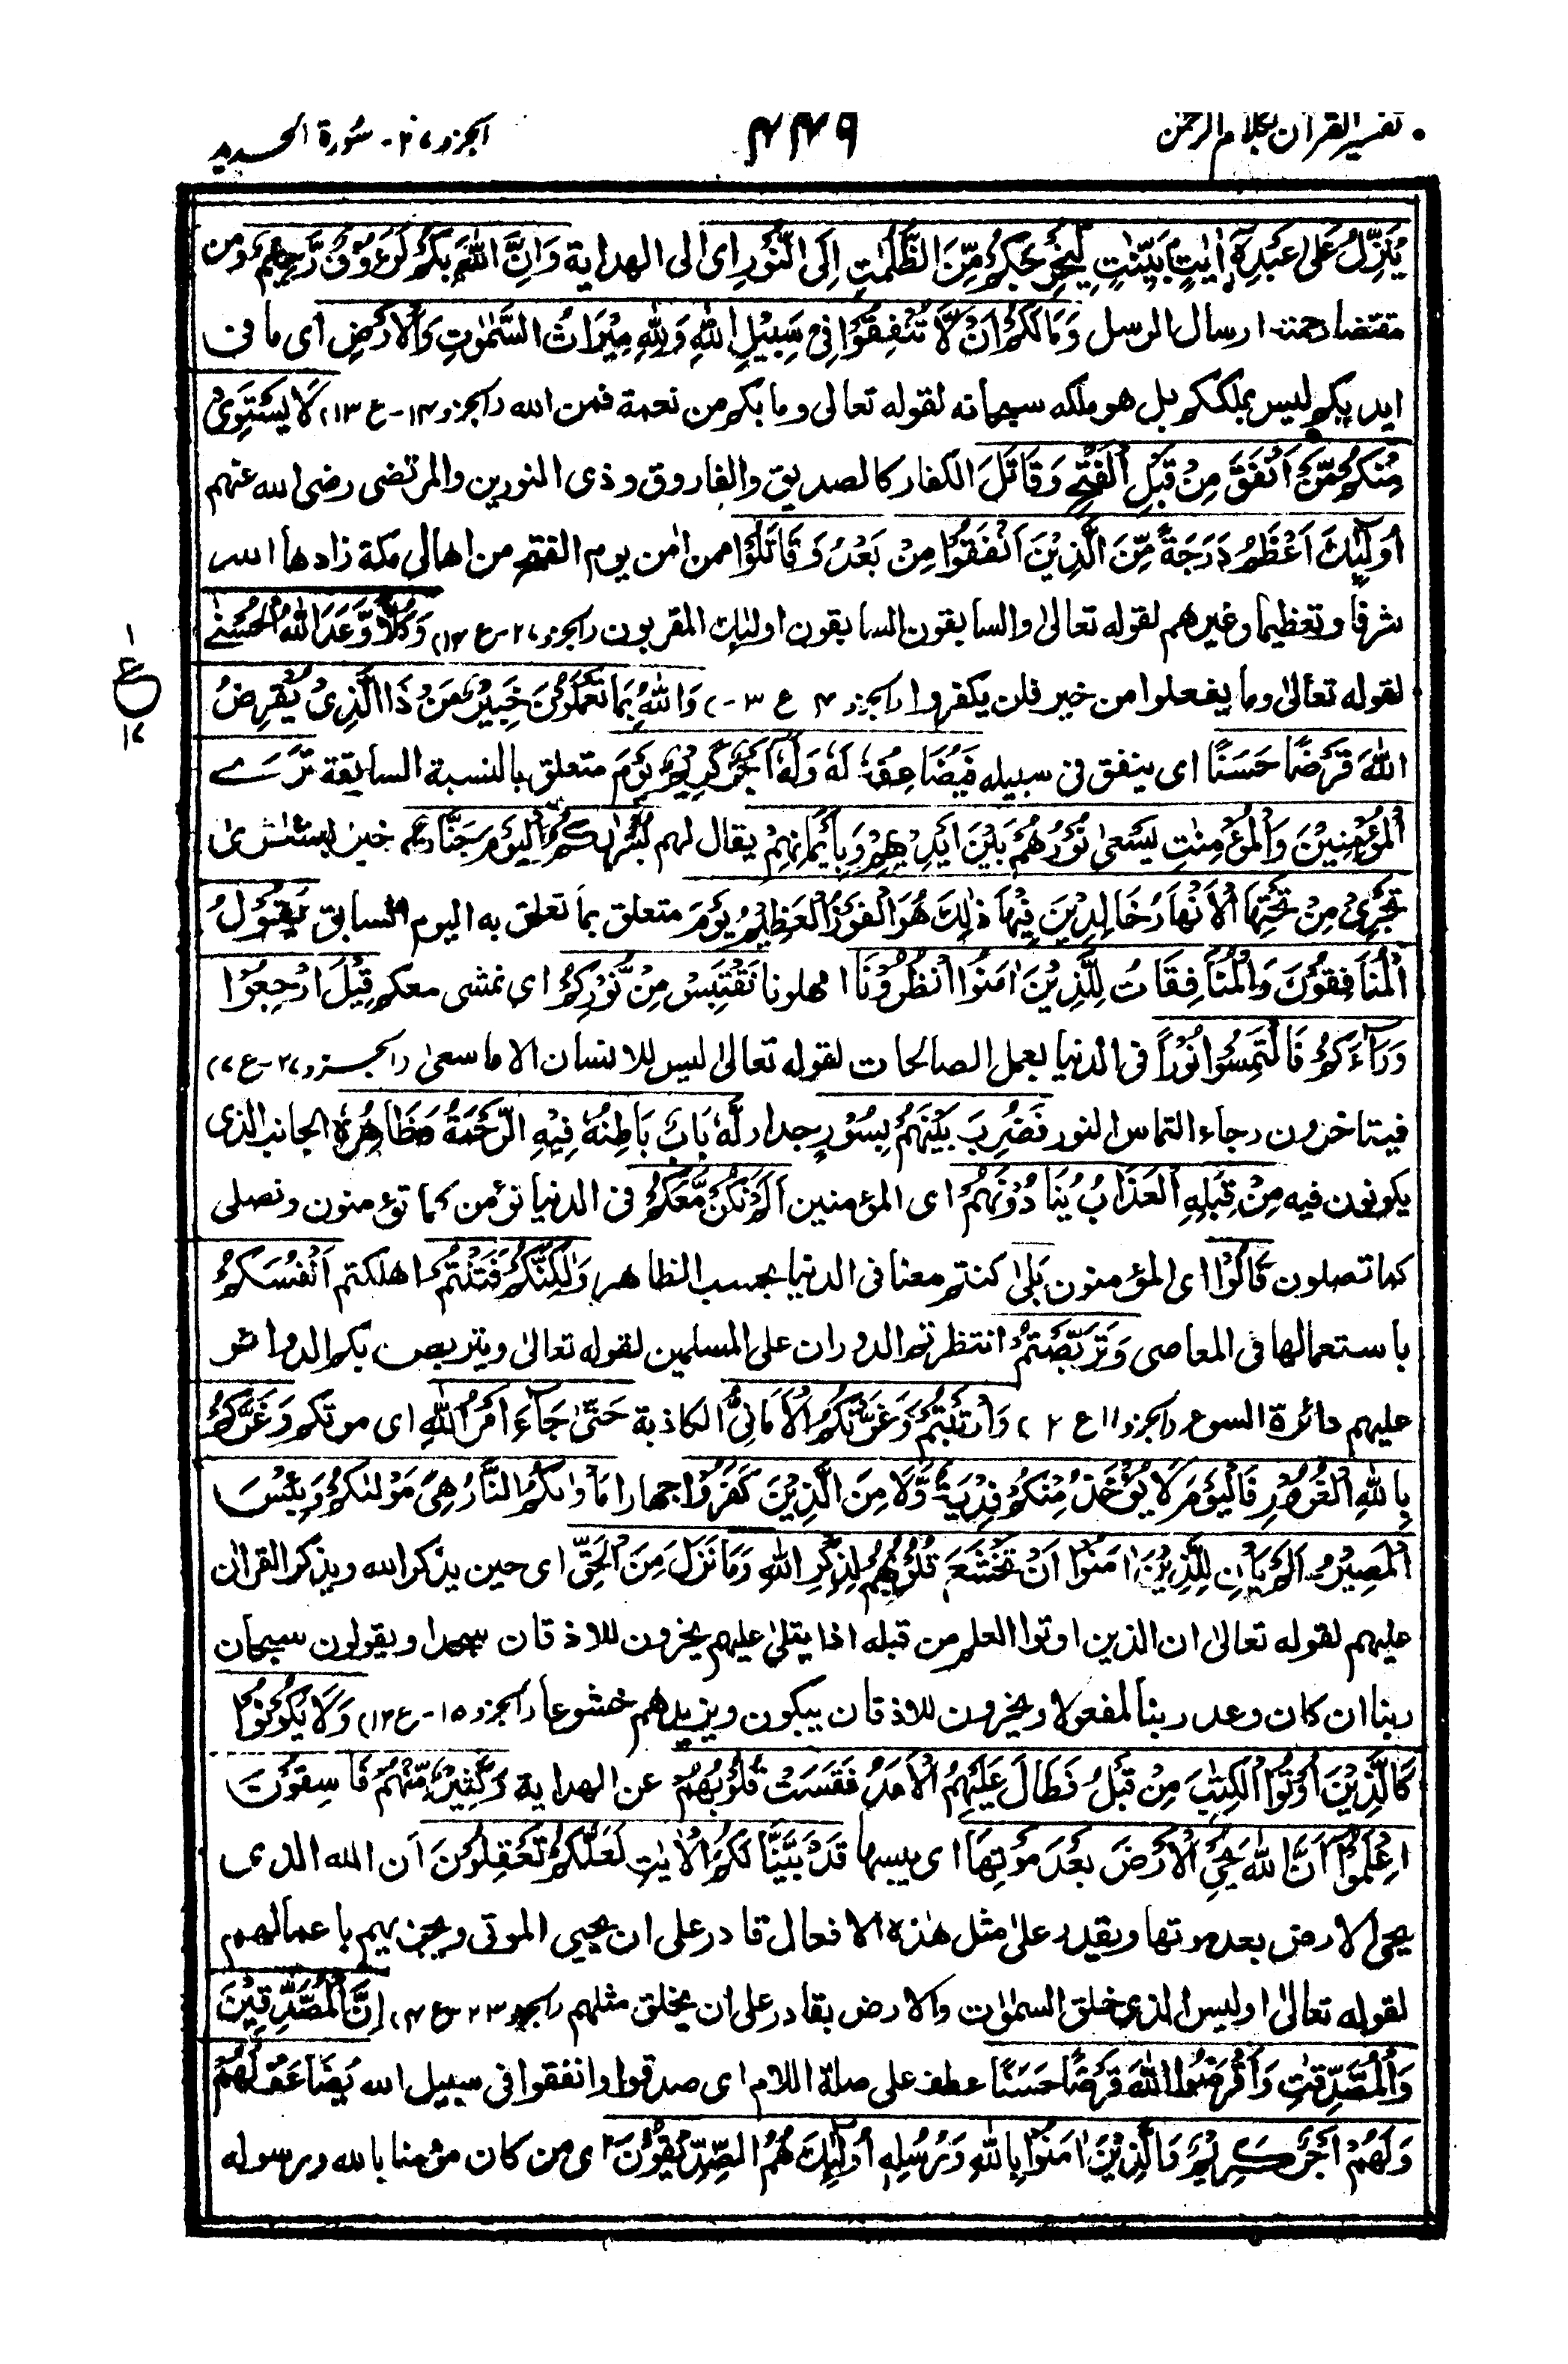 تفسیر القرآن بکلام الرحمٰن
۴۴۹
الجزو ۲۷ - سُورة الحدید
يُنَزِّلُ عَلٰى عَبْدِهٖٓ اٰيٰتٍۭ بَيِّنٰتٍ لِّيُخْرِجَكُمْ مِّنَ الظُّلُمٰتِ اِلَى النُّوْرِ اى الى الهداية وَاِنَّ اللّٰهَ بِكُمْ لَرَءُوْفٌ رَّحِيْمٌ ومن
مقتضا رحمته ارسال الرسل وَمَا لَكُمْ اَنْ لَّا تُنْفِقُوْا فِىْ سَبِيْلِ اللّٰهِ وَلِلّٰهِ مِيْرَاثُ السَّمٰوٰتِ وَالْاَرْضِ اى ما فى
ايديكم ليس بملككم بل هو ملكه سبحانه لقوله تعالى وما بكم من نعمة فمن الله (الجزو ۱۴ - ع ۱۳) لَا يَسْتَوِىْ
مِنْكُمْ مَّنْ اَنْفَقَ مِنْ قَبْلِ الْفَتْحِ وَقَاتَلَ الكفار كالصديق والفاروق وذى النورين والمرتضى رضى الله عنهم
اُولٰٓئِكَ اَعْظَمُ دَرَجَةً مِّنَ الَّذِيْنَ اَنْفَقُوْا مِنْ بَعْدُ وَقَاتَلُوْا ممن اٰمن يوم الفتح من اهالى مكة زادها الله
شرفًا وتعظيما وغيرهم لقوله تعالىٰ والسابقون السابقون اولئك المقربون (الجزو ۲۷ - ع ۱۴) وَكُلًّا وَّعَدَ اللّٰهُ الْحُسْنٰى
لقوله تعالىٰ وما يفعلوا من خير فلن يكفروا (الجزو ۴ ع ۳ -) وَاللّٰهُ بِمَا تَعْمَلُوْنَ خَبِيْرٌ مَنْ ذَا الَّذِىْ يُقْرِضُ
ع
اللّٰهَ قَرْضًا حَسَنًا اى ينفق فى سبيله فَيُضَاعِفَهٗ لَهٗ وَلَهٗٓ اَجْرٌ كَرِيْمٌ يَوْمَ متعلق بالنسبة السابقة تَرَى
الْمُؤْمِنِيْنَ وَالْمُؤْمِنٰتِ يَسْعٰى نُوْرُهُمْ بَيْنَ اَيْدِيْهِمْ وَبِاَيْمَانِهِمْ يقال لهم بُشْرٰىكُمُ الْيَوْمَ جَنّٰتٌ خبر لبشرىٰ
تَجْرِىْ مِنْ تَحْتِهَا الْاَنْهَارُ خَالِدِيْنَ فِيْهَا ذٰلِكَ هُوَ الْفَوْزُ الْعَظِيْمُ يَوْمَ متعلق بما تعلق به اليوم السابق يَقُوْلُ
الْمُنَافِقُوْنَ وَالْمُنَافِقَاتُ لِلَّذِيْنَ اٰمَنُوا انْظُرُوْنَا امهلونا نَقْتَبِسْ مِنْ نُّوْرِكُمْ اى نمشى معكم قِيْلَ ارْجِعُوْا
وَرَآءَكُمْ فَالْتَمِسُوْا نُوْرًا فى الدنيا بعمل الصالحات لقوله تعالىٰ ليس للانسان الا ما سعىٰ (الجزو ۲۷ - ع ۷)
فيتاخرون رجاء التماس النور فَضُرِبَ بَيْنَهُمْ بِسُوْرٍ جدار لَّهٗ بَابٌ بَاطِنُهٗ فِيْهِ الرَّحْمَةُ وَظَاهِرُهٗ الجانب الذى
يكونون فيه مِنْ قِبَلِهِ الْعَذَابُ يُنَادُوْنَهُمْ اى المؤمنين اَلَمْ نَكُنْ مَّعَكُمْ فى الدنيا نؤمن كما تؤمنون ونصلى
كما تصلون قَالُوْا اى المؤمنون بَلٰى كنتم معنا فى الدنيا بحسب الظاهر وَلٰكِنَّكُمْ فَتَنْتُمْ اهلكتم اَنْفُسَكُمْ
باستعمالها فى المعاصى وَتَرَبَّصْتُمْ انتظرتم الدوران على المسلمين لقوله تعالىٰ ويتربص بكم الدوائر
عليهم دائرة السوء (الجزو ۱۱ ع ۲) وَارْتَبْتُمْ وَغَرَّتْكُمُ الْاَمَانِىُّ الكاذبة حَتّٰى جَآءَ اَمْرُ اللّٰهِ اى موتكم وَغَرَّكُمْ
بِاللّٰهِ الْغَرُوْرِ فَالْيَوْمَ لَا يُؤْخَذُ مِنْكُمْ فِدْيَةٌ وَّلَا مِنَ الَّذِيْنَ كَفَرُوْا جهارا مَاْوٰىكُمُ النَّارُ هِىَ مَوْلٰىكُمْ وَبِئْسَ
الْمَصِيْرُ اَلَمْ يَاْنِ لِلَّذِيْنَ اٰمَنُوْٓا اَنْ تَخْشَعَ قُلُوْبُهُمْ لِذِكْرِ اللّٰهِ وَمَا نَزَلَ مِنَ الْحَقِّ اى حين يذكر الله ويذكر القراٰن
عليهم لقوله تعالىٰ ان الذين اوتوا العلم من قبله اذا يتلىٰ عليهم يخرون للاذقان سجدا ويقولون سبحان
ربنا ان كان وعد ربنا لمفعولا ويخرون للاذقان يبكون ويزيدهم خشوعا (الجزو ۱۵ - ع ۱۲) وَلَا يَكُوْنُوْا
كَالَّذِيْنَ اُوْتُوا الْكِتٰبَ مِنْ قَبْلُ فَطَالَ عَلَيْهِمُ الْاَمَدُ فَقَسَتْ قُلُوْبُهُمْ عن الهداية وَكَثِيْرٌ مِّنْهُمْ فَاسِقُوْنَ
اِعْلَمُوْٓا اَنَّ اللّٰهَ يُحْىِ الْاَرْضَ بَعْدَ مَوْتِهَا اى يبسها قَدْ بَيَّنَّا لَكُمُ الْاٰيٰتِ لَعَلَّكُمْ تَعْقِلُوْنَ اَن الله الذى
يحى الارض بعد موتها ويقدر علىٰ مثل هٰذه الافعال قادر على ان يحيى الموتى ويجزيهم باعمالهم
لقوله تعالىٰ اوليس الذى خلق السمٰوٰت والارض بقادر على ان يخلق مثلهم (الجزو ۲۳ - ع ۴) اِنَّ الْمُصَّدِّقِيْنَ
وَالْمُصَّدِّقٰتِ وَاَقْرَضُوا اللّٰهَ قَرْضًا حَسَنًا عطف على صلة اللام اى صدقوا وانفقوا فى سبيل الله يُضَاعَفُ لَهُمْ
وَلَهُمْ اَجْرٌ كَرِيْمٌ وَالَّذِيْنَ اٰمَنُوْا بِاللّٰهِ وَرُسُلِهٖٓ اُولٰٓئِكَ هُمُ الصِّدِّيْقُوْنَ اى من كان مؤمنا بالله ورسوله